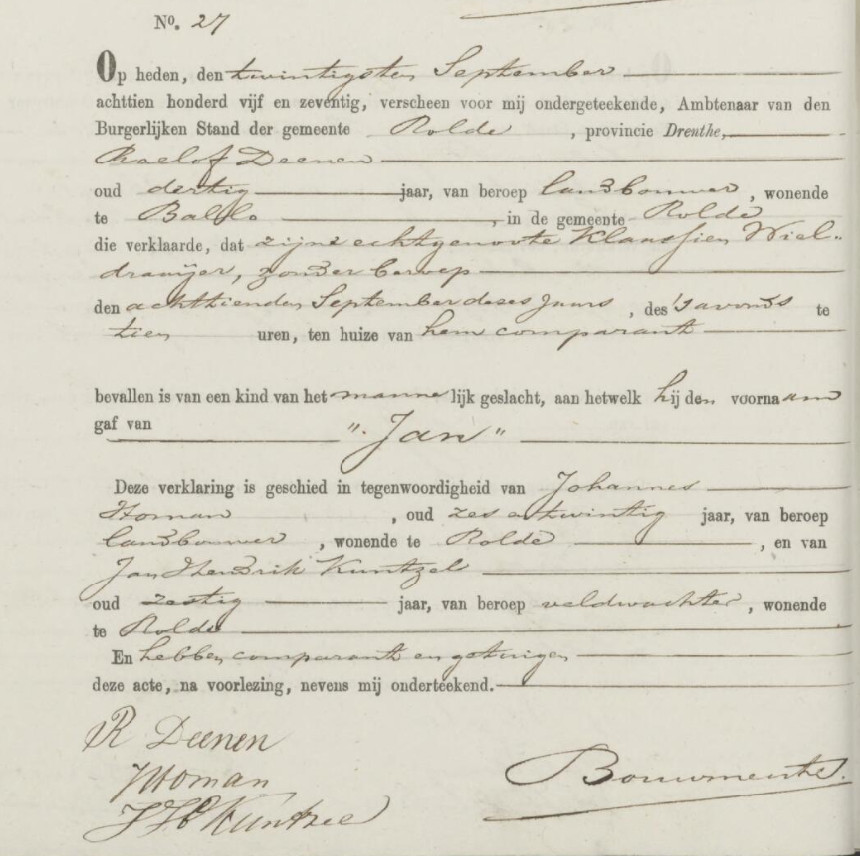 No. 27
Op heden, den twintigsten September
achttien honderd vijf en zeventig, verscheen voor mij ondergeteekende, Ambtenaar van den
Burgerlijken Stand der gemeente Rolde, provincie Drenthe,
Roelof Deenen
oud dertig jaar, van beroep landbouwer, wonende
te Ballo, in de gemeente Rolde
die verklaarde, dat zijne echtgenoote Klaassien Wiel-
draaijer, zonder beroep
den achttienden September dezes jaars, des 's avonds te
tien uren, ten huize van hem comparant
bevallen is van een kind van het mannelijk geslacht, aan hetwelk hij den voornaam
gaf van "Jan"
Deze verklaring is geschied in tegenwoordigheid van Johannes
Homan, oud zes en twintig jaar, van beroep
landbouwer, wonende te Rolde, en van
Jan Hendrik Kuntzel
oud zestig jaar, van beroep veldwachter, wonende
te Rolde
En hebben comparant en getuigen
deze acte, na voorlezing, nevens mij onderteekend.
R Deenen
J Homan
J H Kuntzel